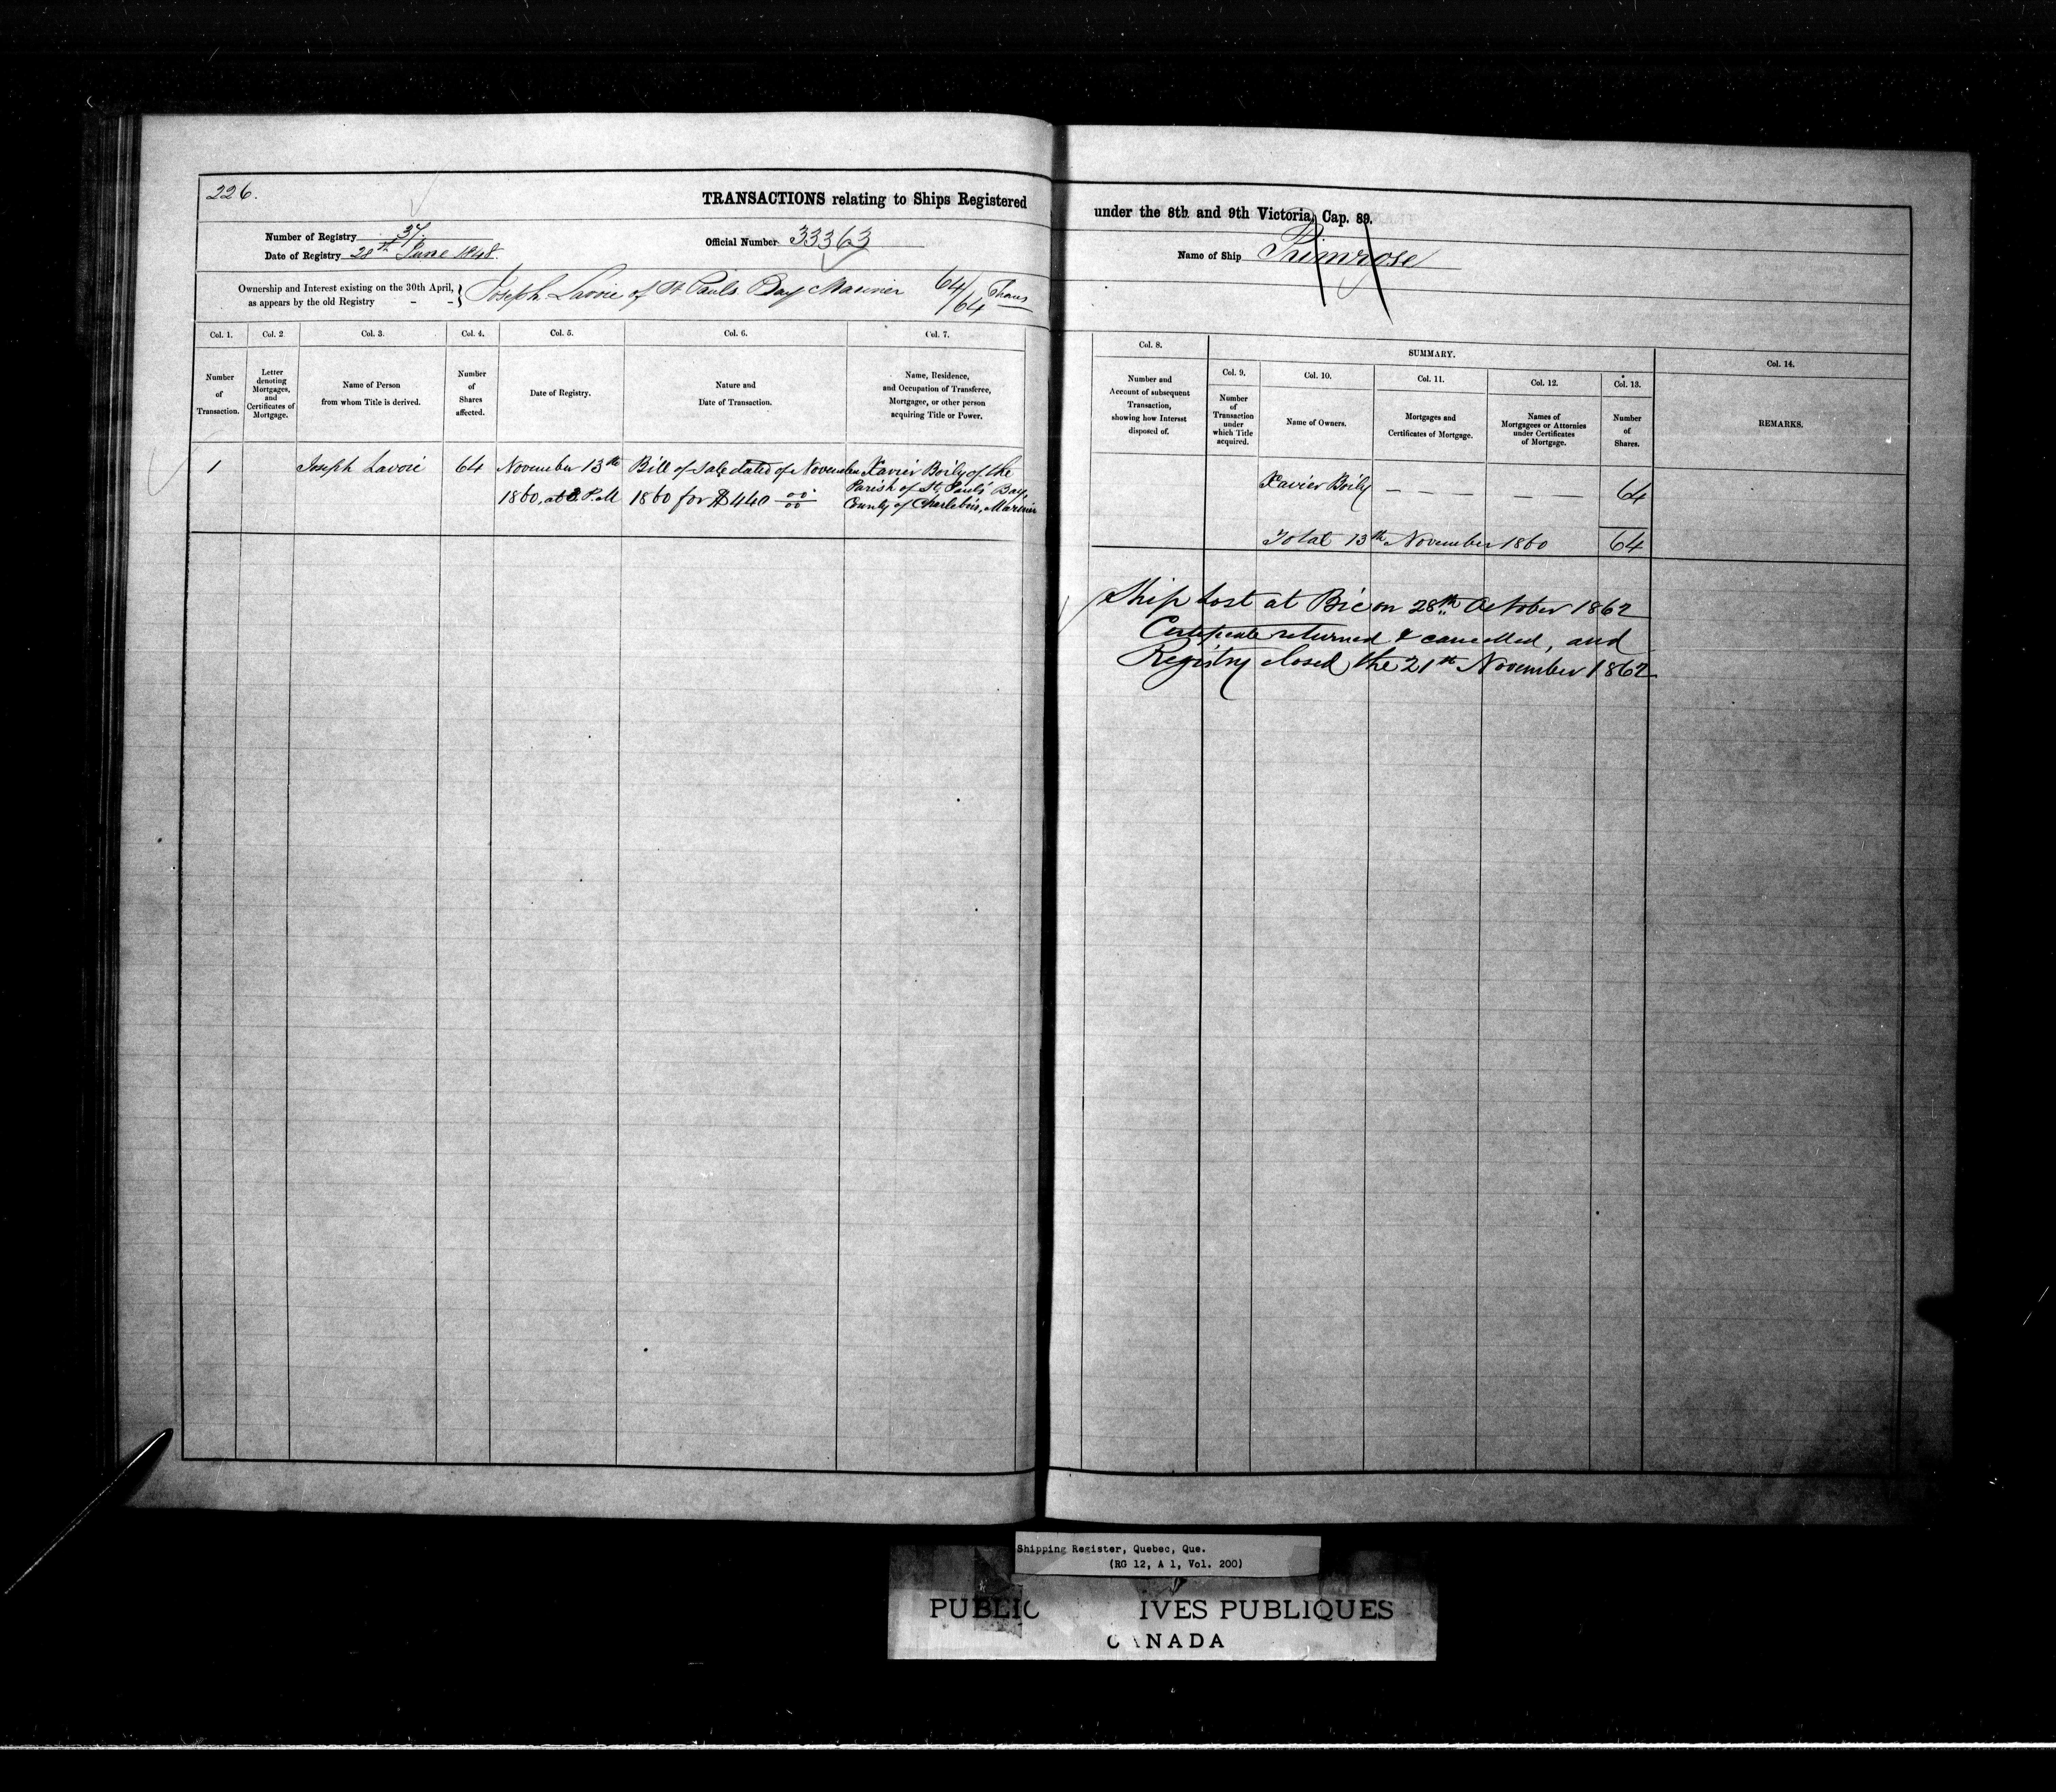 226.
TRANSACTIONS relating to Ships Registered under the 8th and 9th Victoria, Cap. 89.
Number of Registry 37.
Date of Registry 28th June 1848.
Official Number 33363
Name of Ship Primrose
Ownership and Interest existing on the 30th April,
as appears by the old Registry - -
Joseph Lavoie of St Pauls Bay Mariner 64/64 Shares
Col. 1.
Number
of
Transaction.
Col. 2
Letter
denoting
Mortgages,
and
Certificates of
Mortgage.
Col. 3.
Name of Person
from whom Title is derived.
Col. 4.
Number
of
Shares
affected.
Col. 5.
Date of Registry.
Col. 6.
Nature and
Date of Transaction.
Col. 7.
Name, Residence,
and Occupation of Transferee,
Mortgagee, or other person
acquiring Title or Power.
Col. 8.
Number and
Account of subsequent
Transaction,
showing how Interest
disposed of.
SUMMARY.
Col. 9.
Number
of
Transaction
under
which Title
acquired.
Col. 10.
Name of Owners.
Col. 11.
Mortgages and
Certificates of Mortgage.
Col. 12.
Names of
Mortgagees or Attornies
under Certificates
of Mortgage.
Col. 13.
Number
of
Shares.
Col. 14.
REMARKS.
1
Joseph Lavoie
64
November 13th
1860, at P.M
Bill of Sale dated of November
1860 for $440 00/00
Xavier Boily of the
Parish of St. Pauls' Bay,
County of Charlebois, Mariner
Xavier Boily — — — — — — 64
Total 13th November 1860 64
Ship lost at Bic on 28th October 1862
Certificate returned & cancelled, and
Registry closed the 21st November 1862
Shipping Register, Quebec, Que.
(RG 12, A 1, Vol. 200)
PUBLIC IVES PUBLIQUES
CANADA